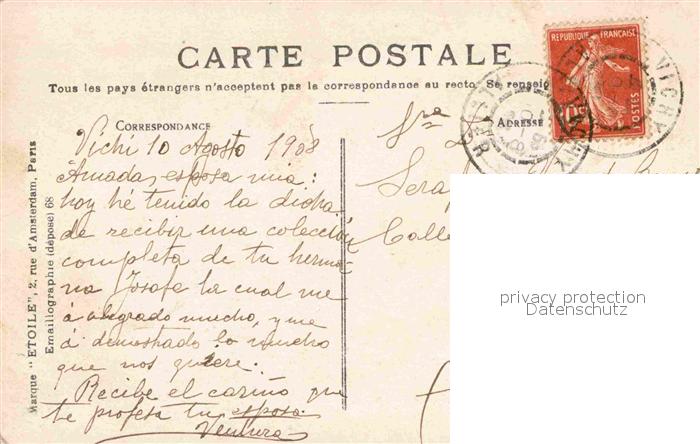 CARTE POSTALE
Tous les pays étrangers n'acceptent pas la correspondance au recto. Se renseig
CORRESPONDANCE
ADRESSE
REPUBLIQUE FRANÇAISE
10c
POSTES
VICHY
Marque "ETOILE", 2, rue d'Amsterdam, Paris
Emaillographie (déposé) 68
Vichi 10 Agosto 1908
Amada esposa mia:
hoy hé tenido la dicha
de recibir una colección
completa de tu herma-
na Josefa la cual me
á alegrado mucho, y me
á demostrado lo mucho
que nos quiere.
Recibe el cariño que
te profesa tu esposo
Ventura
Sra
Calle
privacy protection
Datenschutz